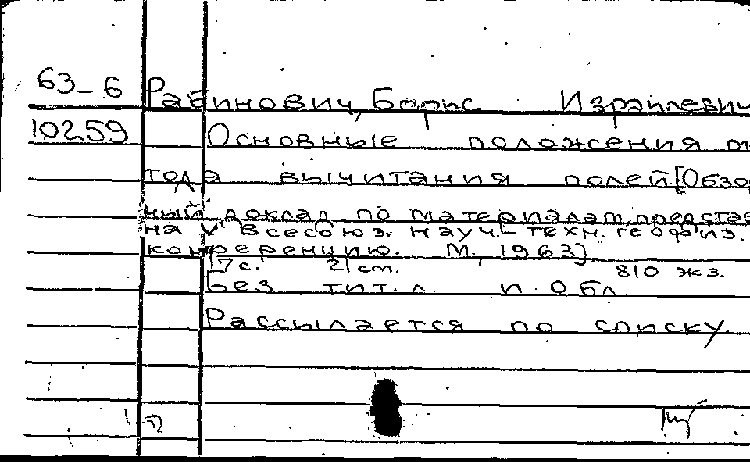 63-6 Рабинович, Борис Израилевич
10259 Основные положения ме
тода вычитания полей [Обзор
ный доклад по материалам, представ
на V Всесоюз. науч.-техн. геофиз.
конференцию. М., 1963]
17 с. 21 см. 810 экз.
Без тит. л. и обл
Рассылается по списку